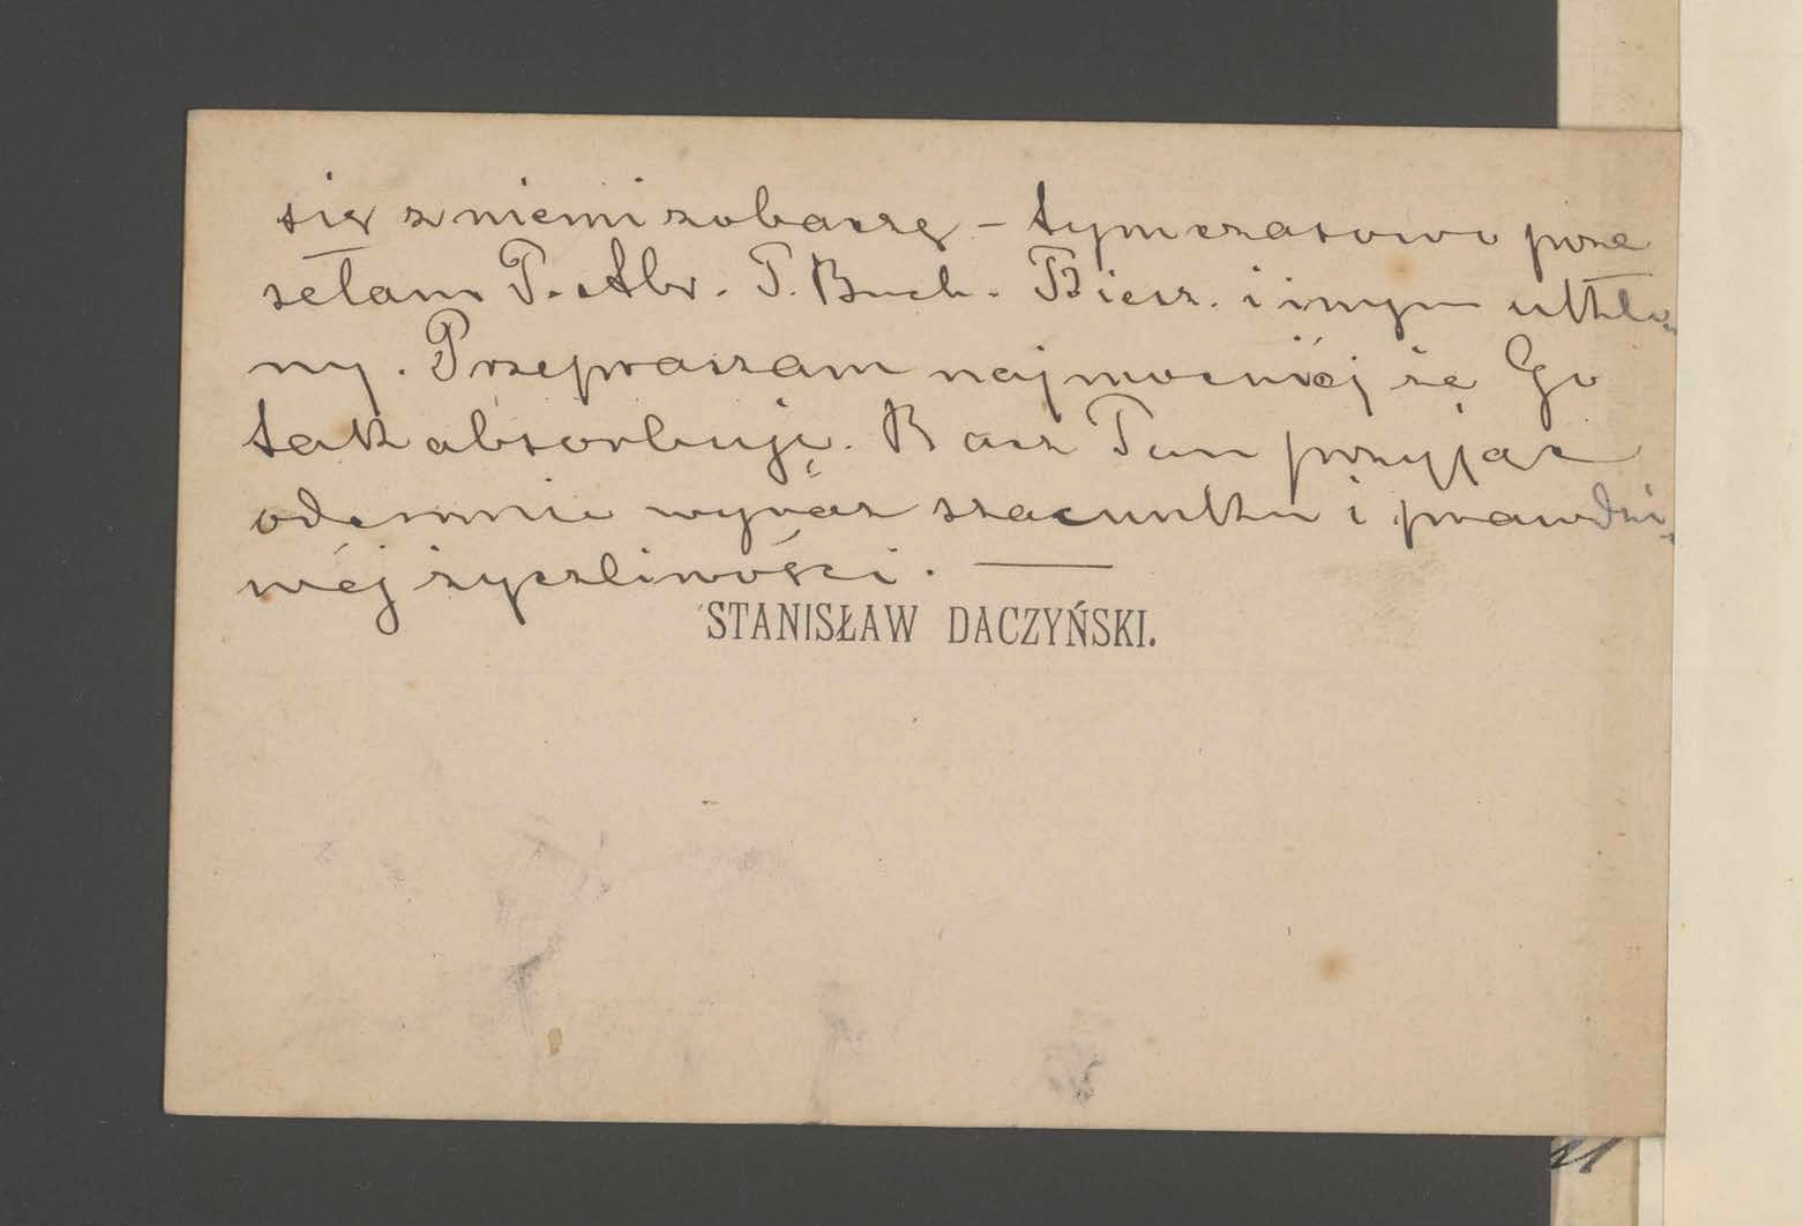 się z niemi zobaczę – tymczasowo prze
sełam P. Abr. P. Buch. Biesz. i innym ukło
ny. Przepraszam najmocniéj że Go
tak absorbuję. Racz Pan przyjąć
odemnie wyraz szacunku i prawdzi
wéj życzliwości. —
STANISŁAW DACZYŃSKI.